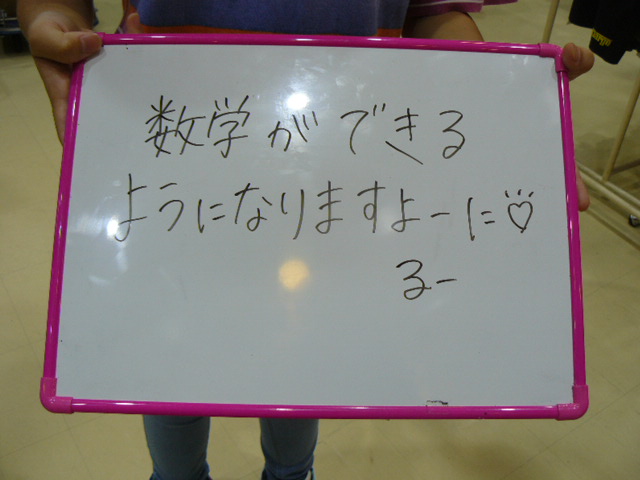 数学ができる
ようになりますよーに♡
るー